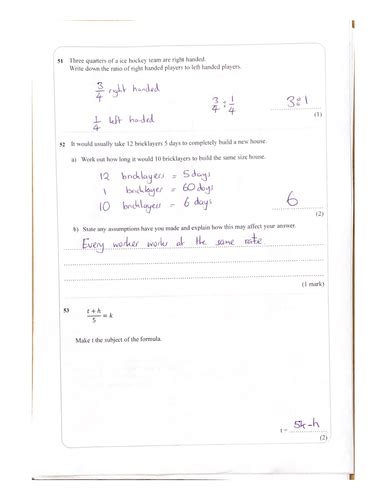 51 Three quarters of a ice hockey team are right handed.
Write down the ratio of right handed players to left handed players.
3/4 right handed
3/4 : 1/4
3:1
1/4 left handed
(1)
52 It would usually take 12 bricklayers 5 days to completely build a new house.
a) Work out how long it would 10 bricklayers to build the same size house.
12 bricklayers = 5 days
1 bricklayer = 60 days
10 bricklayers = 6 days
6
(2)
b) State any assumptions have you made and explain how this may affect your answer.
Every worker works at the same rate
(1 mark)
53 (t + h)/5 = k
Make t the subject of the formula.
t = 5k-h
(2)